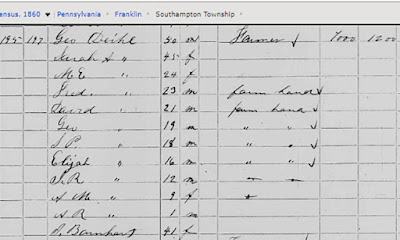 ensus, 1860 Pennsylvania Franklin Southampton Township
195 197 Geo Deihl 50 m Farmer 7000 1200
Sarah A " 45 f
M E " 24 f
Fred. " 23 m farm hand
21 m farm hand
Geo " 19 m " "
S. P. " 18 m " "
Elijah " 16 m " "
S. R " 12 m
A M. " 9 f
A R " 1 m
Barnhart 41 f